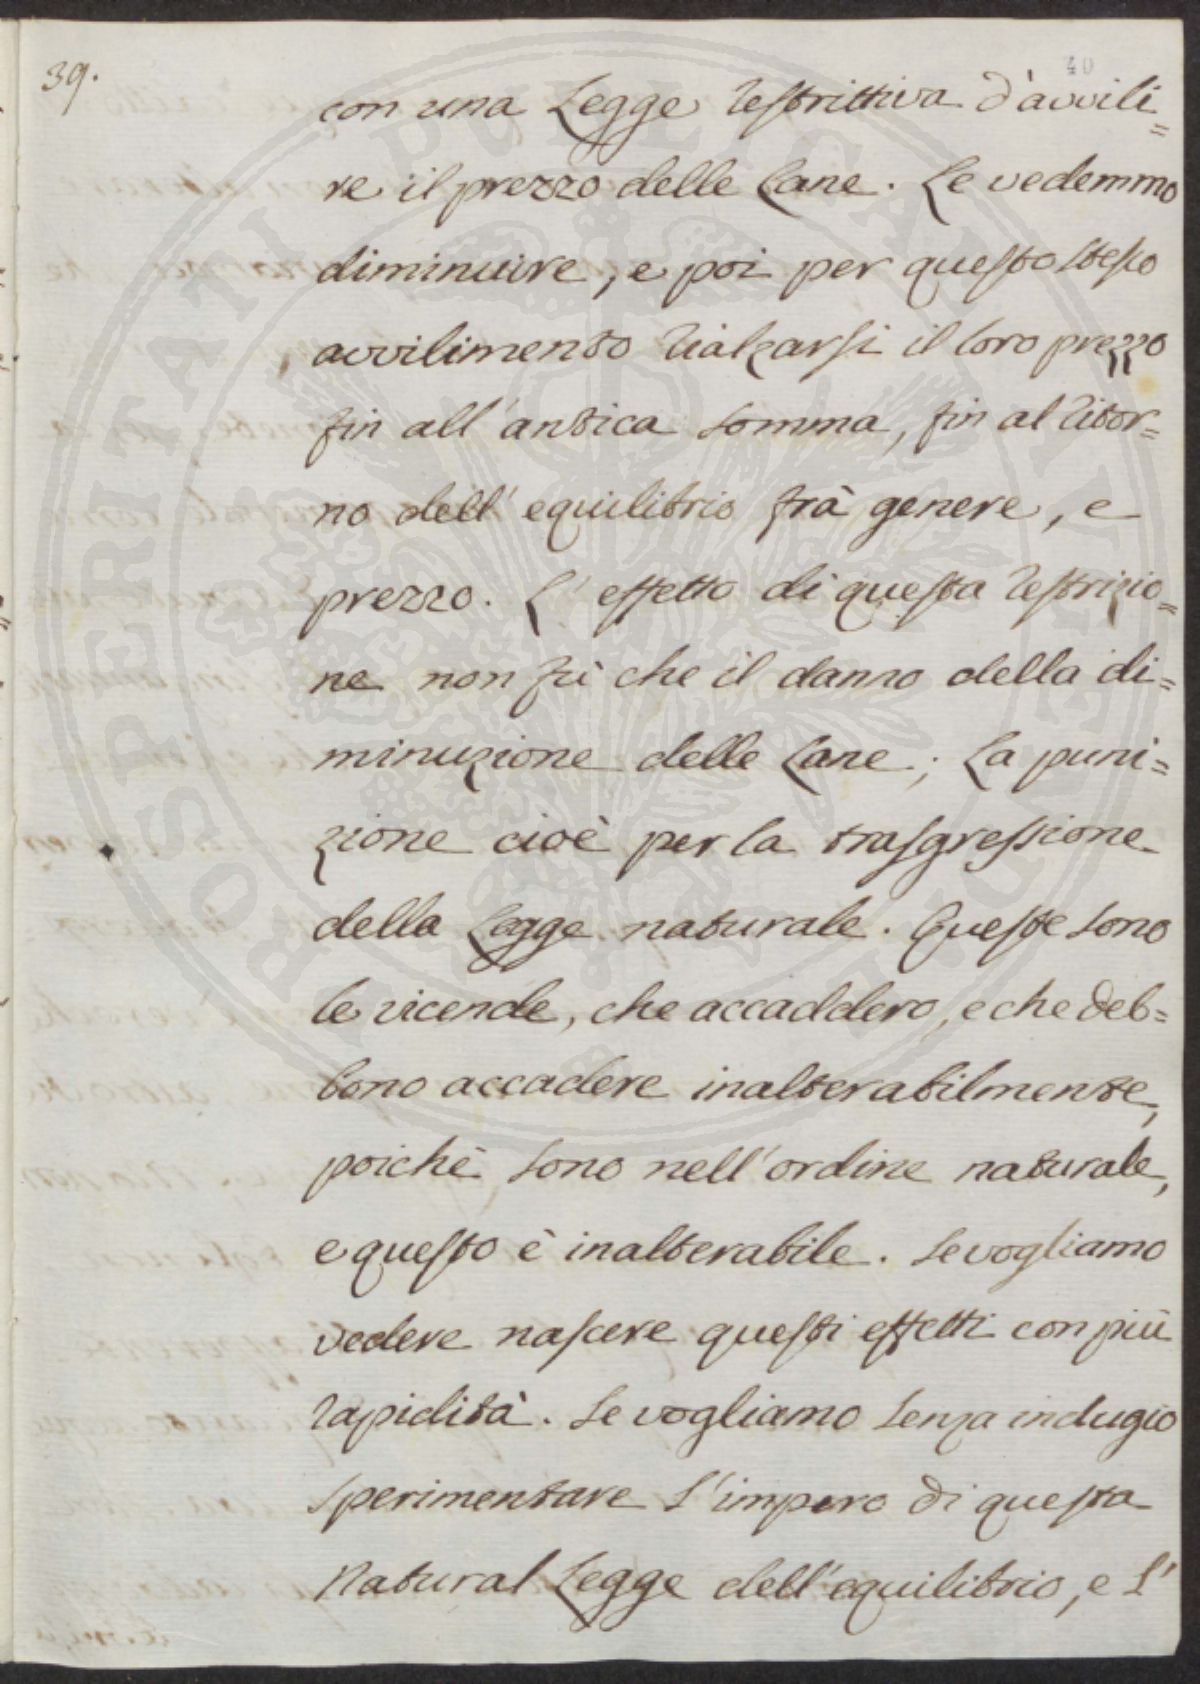 39.
40
con una Legge restrittiva d'avvili=
re il prezzo delle Lane. Le vedemmo
diminuire, e poi per questo stesso
avvilimento rialzarsi il loro prezzo
fin all'antica somma, fin al ritor=
no dell'equilibrio frà genere, e
prezzo. L'effetto di questa restrizio=
ne non fù che il danno della di=
minuzione delle Lane; La puni=
zione cioè per la trasgressione
della Legge naturale. Queste sono
le vicende, che accaddero, e che deb=
bono accadere inalterabilmente,
poichè sono nell'ordine naturale,
e questo è inalterabile. Se vogliamo
vedere nascere questi effetti con più
rapidità. Se vogliamo senza indugio
sperimentare l'impero di questa
Natural Legge dell'equilibrio, e l'
PROSPERITATI PUBLICAE